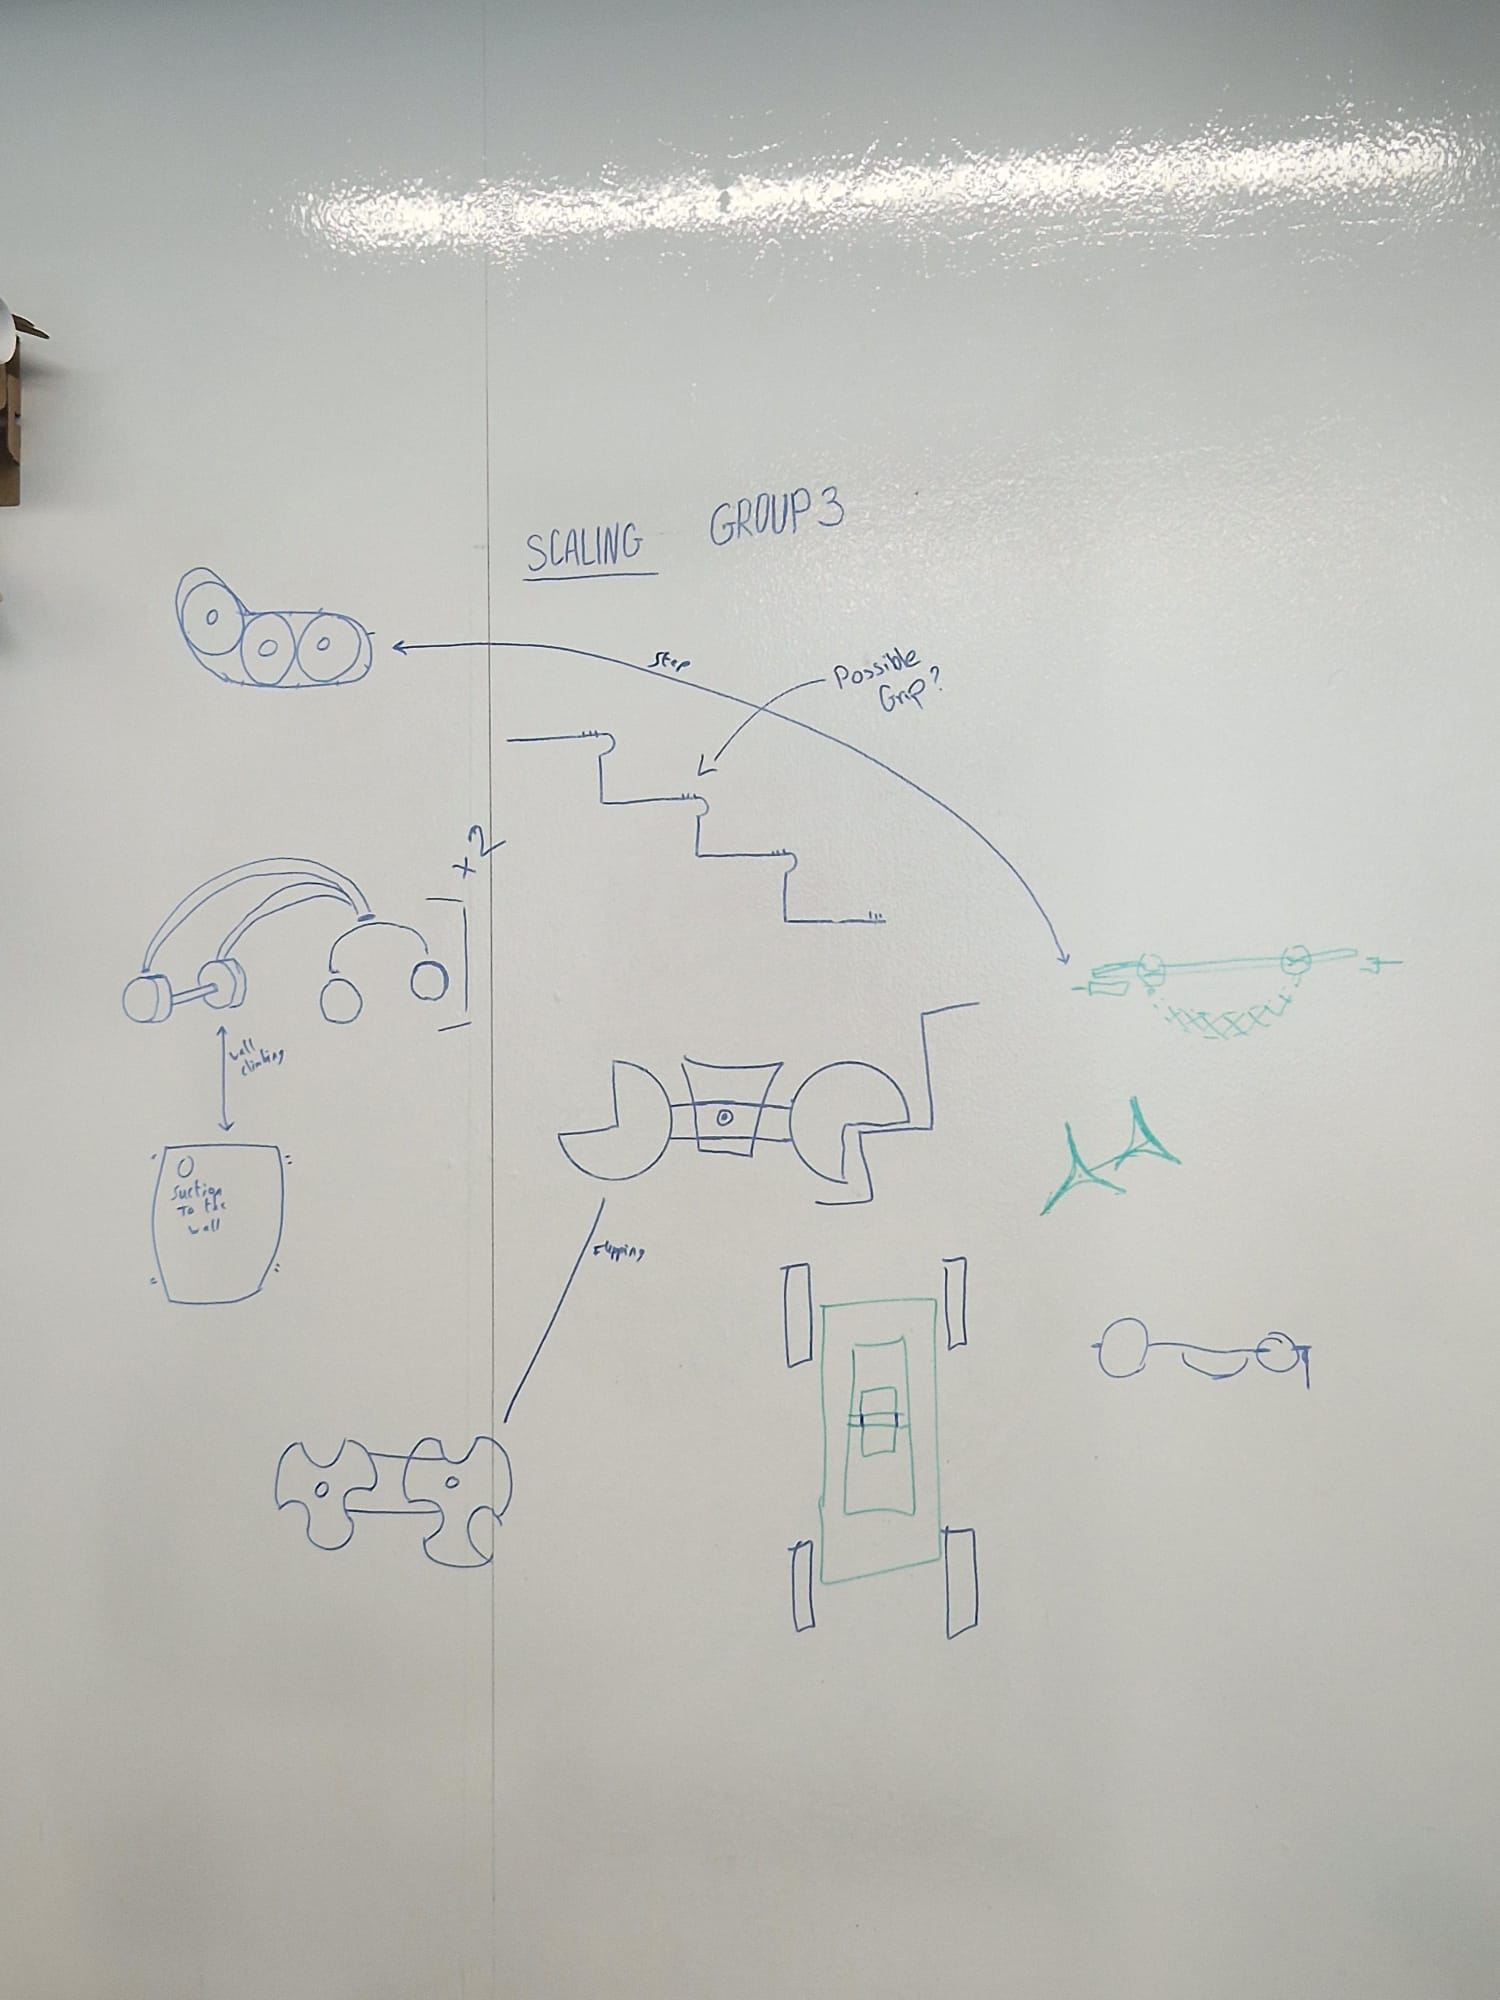 SCALING GROUP 3
Step
Possible
Grip?
x2
wall
climbing
Suction
To the
wall